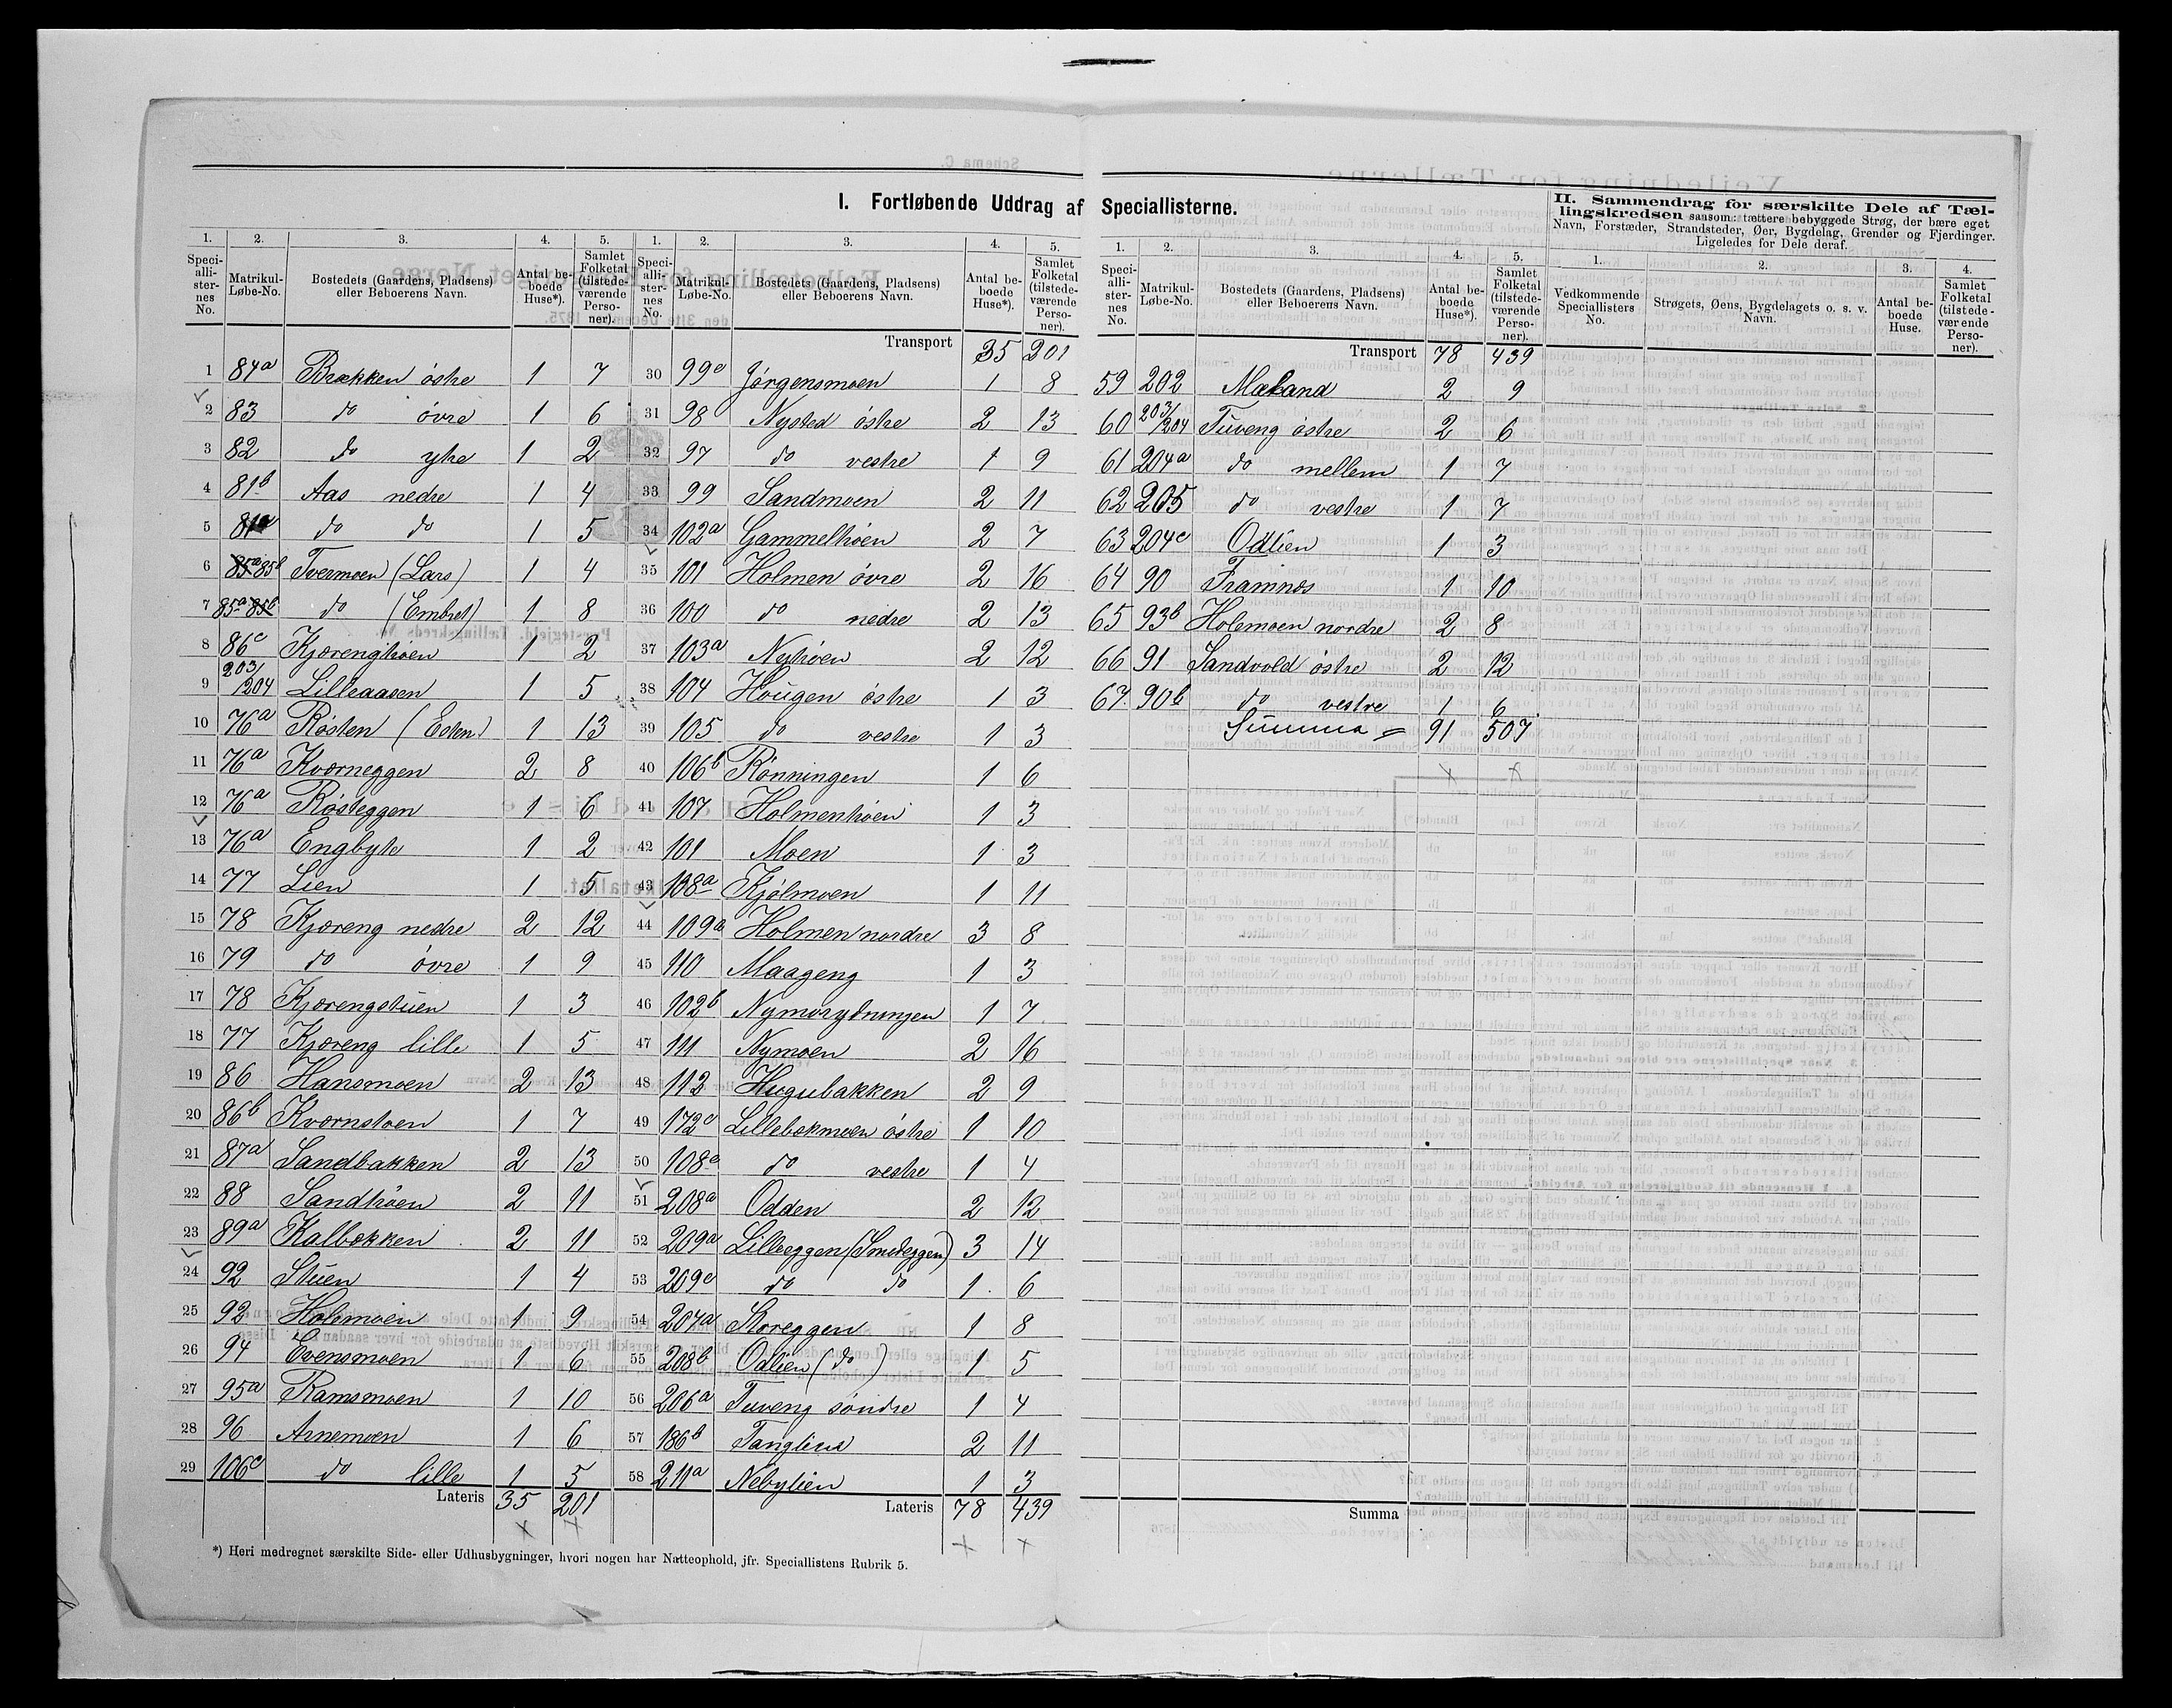 I. Fortløbende Uddrag af Speciallisterne.
1. 2. 3. 4. 5.
Speciallisternes No. Matrikul-Løbe-No. Bostedets (Gaardens, Pladsens) eller Beboerens Navn. Antal beboede Huse*). Samlet Folketal (tilstedeværende Personer).
1 84a Brækken östre 1 7
2 83 do övre 1 6
3 82 do ytre 1 2
4 81b Aas nedre 1 4
5 81a do do 1 5
6 85a 85b Tvermoen (Lars) 1 4
7 85a 85b do (Embret) 1 8
8 86c Kjærenghöen 1 2
9 203/204 Lilleaasen 1 5
10 76a Røsten (Esten) 1 13
11 76a Kværneggen 2 8
12 76a Røsteggen 1 6
13 76a Engbyte 1 2
14 77 Lien 1 5
15 78 Kjæreng nedre 2 12
16 79 do övre 1 9
17 78 Kjærengstuen 1 3
18 77 Kjæreng lille 1 5
19 86 Hansmoen 2 13
20 86b Kværnstoen 1 7
21 87a Sandbakken 2 13
22 88 Sandhöen 2 11
23 89a Kalbækken 2 11
24 92 Stuen 1 4
25 92 Holemoen 1 9
26 94 Evensmoen 1 6
27 95a Ramsmoen 1 10
28 96 Arnemoen 1 6
29 106c do lille 1 5
Lateris 35 201
*) Heri medregnet særskilte Side- eller Udhusbygninger, hvori nogen har Natteophold, jfr. Speciallistens Rubrik 5.
1. 2. 3. 4. 5.
Speciallisternes No. Matrikul-Løbe-No. Bostedets (Gaardens, Pladsens) eller Beboerens Navn. Antal beboede Huse*). Samlet Folketal (tilstedeværende Personer).
Transport 35 201
30 99c Jörgensmoen 1 8
31 98 Nysted östre 2 13
32 97 do vestre 1 9
33 99 Sandmoen 2 11
34 102a Gammelhöen 2 7
35 101 Holmen övre 2 16
36 100 do nedre 2 13
37 103a Nyhöen 2 12
38 104 Hougen östre 1 3
39 105 do vestre 1 3
40 106b Rönningen 1 6
41 107 Holmenhöen 1 3
42 101 Moen 1 3
43 108a Kjölmoen 1 11
44 109a Holmen nordre 3 8
45 110 Maageng 1 3
46 102b Nymorydningen 1 7
47 111 Nymoen 2 16
48 112 Hugubakken 2 9
49 172c Lillebækmoen östre 1 10
50 108c do vestre 1 4
51 208a Odden 2 12
52 209a Lilleeggen (Smedeggen) 3 14
53 209c do do 1 6
54 207a Storeggen 1 8
55 208b Odlien (do) 1 5
56 206a Tuveng söndre 1 4
57 186b Tanglien 2 11
58 211a Nebylien 1 3
Lateris 78 439
1. 2. 3. 4. 5.
Speciallisternes No. Matrikul-Løbe-No. Bostedets (Gaardens, Pladsens) eller Beboerens Navn. Antal beboede Huse*). Samlet Folketal (tilstedeværende Personer).
Transport 78 439
59 202 Mæland 2 9
60 203/204 Tuveng östre 2 6
61 204a do mellem 1 7
62 205 do vestre 1 7
63 204c Odlien 1 3
64 90 Framnes 1 10
65 93b Holemoen nordre 2 8
66 91 Sandvold östre 2 12
67. 90b do vestre 1 6
Summa = 91 507
Summa
II. Sammendrag for særskilte Dele af Tællingskredsen saasom: tættere bebyggede Strøg, der bære eget Navn, Forstæder, Strandsteder, Øer, Bygdelag, Grender og Fjerdinger. Ligeledes for Dele deraf.
1. 2. 3. 4.
Vedkommende Speciallisters No. Strøgets, Øens, Bygdelagets o. s. v. Navn. Antal beboede Huse. Samlet Folketal (tilstedeværende Personer).